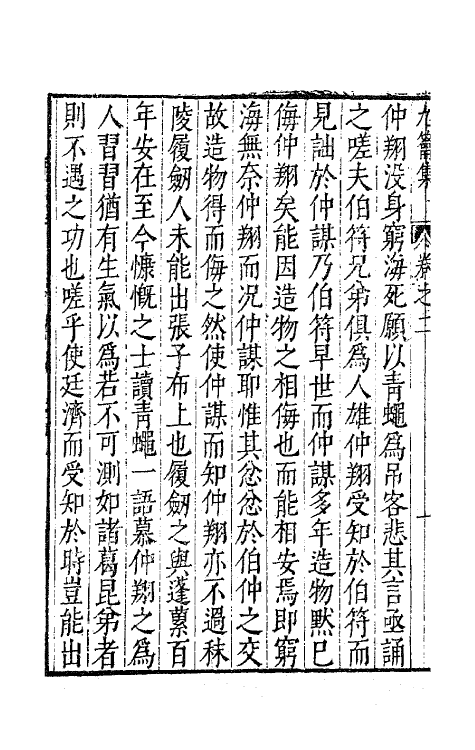 九籥集 卷之二 十
仲翔没身窮海死願以靑蠅爲吊客悲其言亟誦
之嗟夫伯符兄弟俱爲人雄仲翔受知於伯符而
見詘於仲謀乃伯符早世而仲謀多年造物黙已
侮仲翔矣能因造物之相侮也而能相安焉即窮
海無奈仲翔而况仲謀耶惟其忿忿於伯仲之交
故造物得而侮之然使仲謀而知仲翔亦不過秣
陵履劒人未能出張子布上也履劒之與蓬藁百
年安在至今慷慨之士讀靑蠅一語慕仲翔之爲
人習習猶有生氣以爲若不可測如諸葛昆弟者
則不遇之功也嗟乎使廷濟而受知於時豈能出